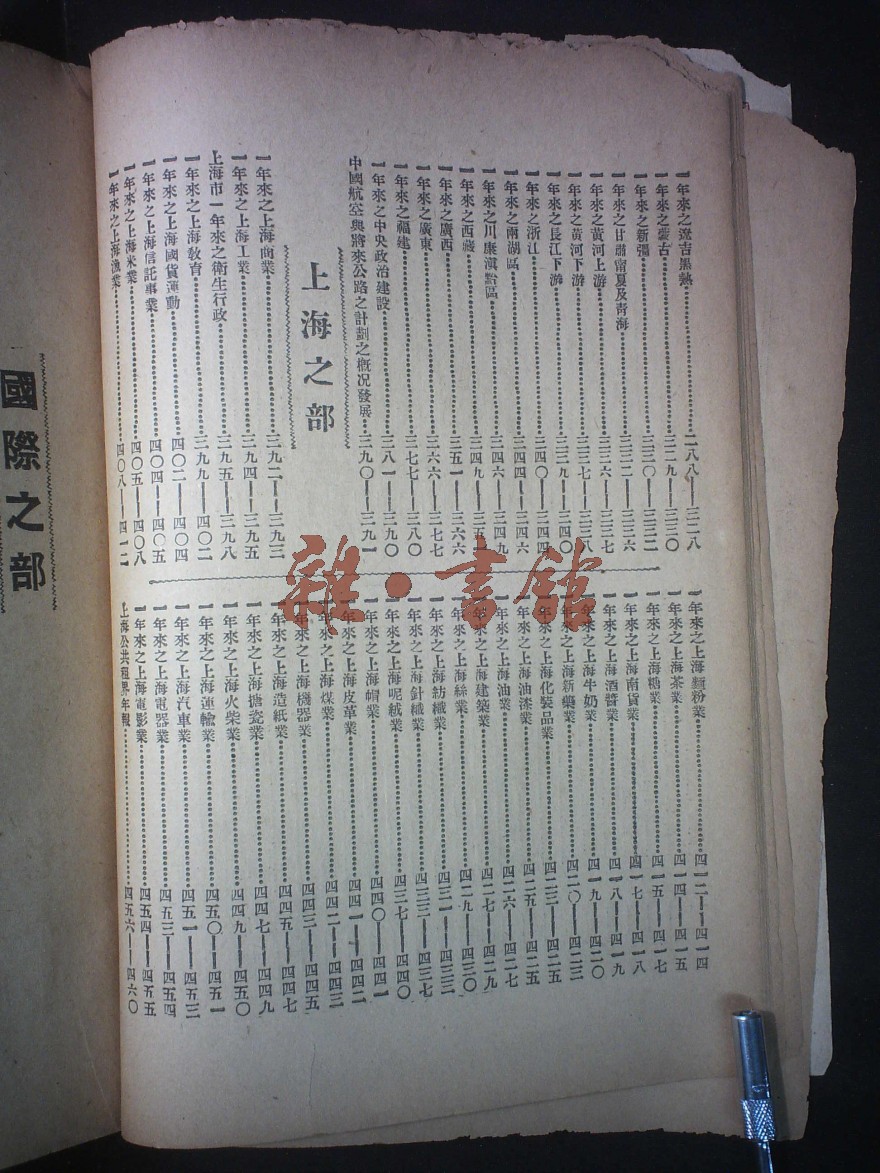 一年來之遼吉黑熱……二八八——三二八
一年來之蒙古……三二九——三三〇
一年來之新疆……三三〇——三三二
一年來之甘肅甯夏及靑海……三三二——三三六
一年來之黃河上游……三三六——三三七
一年來之黃河下游……三三七——三三八
一年來之長江下游……三三九——三四〇
一年來之浙江……三四〇——三四四
一年來之兩湖區……三四四——三四六
一年來之川康滇黔區……三四六——三四九
一年來之西藏……三四九——三五一
一年來之廣西……三五一——三六六
一年來之廣東……三六六——三七七
一年來之福建……三七七——三八〇
一年來之中央政治建設……三八一——三九〇
中國航空與將來公路之計劃之槪況發展……三九〇——三九一
上海之部
一年來之上海商業……三九二——三九三
一年來之上海工業……三九四——三九五
上海市一年來之衛生行政……三九五——三九八
一年來之上海敎育……三九九——四〇二
一年來之上海國貨運動……四〇二——四〇四
一年來之上海信託事業……四〇四——四〇五
一年來之上海米業……四〇五——四〇八
一年來之上海漁業……四〇八——四一二
一年來之上海麵粉業……四一二——四一四
一年來之上海茶業……四一四——四一五
一年來之上海糖業……四一五——四一七
一年來之上海南貨業……四一七——四一八
一年來之上海酒醬業……四一八——四一九
一年來之上海牛奶業……四一九——四二〇
一年來之上海新藥業……四二〇——四二三
一年來之上海化裝品業……四二三——四二五
一年來之上海油漆業……四二五——四二六
一年來之上海油業……四二六——四二七
一年來之上海建築業……四二七——四二九
一年來之上海絲業……四二九——四三〇
一年來之上海紡織業……四三一——四三三
一年來之上海針織業……四三三——四三七
一年來之上海呢絨業……四三七——四四〇
一年來之上海帽業……四四〇——四四一
一年來之上海皮革業……四四一——四四二
一年來之上海煤業……四四二——四四三
一年來之上海機器業……四四三——四四五
一年來之上海造紙業……四四五——四四七
一年來之上海搪瓷業……四四七——四四九
一年來之上海火柴業……四四九——四五〇
一年來之上海運輸業……四五〇——四五一
一年來之上海汽車業……四五一——四五三
一年來之上海電器業……四五三——四五四
一年來之上海電影業……四五四——四五五
上海公共租界年報……四五六——四六〇
國際之部
雜·書館